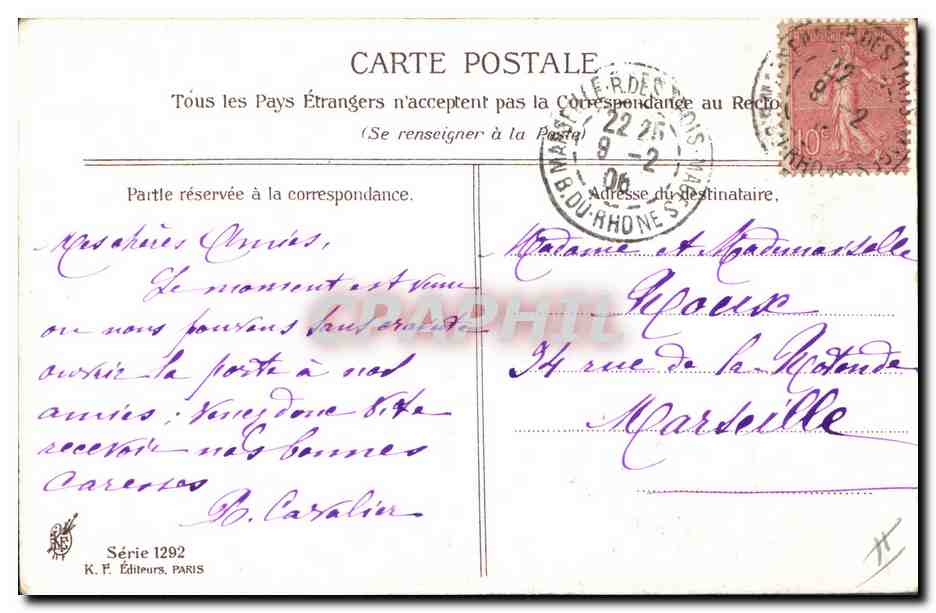 CARTE POSTALE
Tous les Pays Étrangers n'acceptent pas la Correspondance au Recto
(Se renseigner à la Poste)
MARSEILLE-R.DES TROIS-MAGES
22 25
8 -2
06
B.DU-RHONE
22
8 -2
10c
Partie réservée à la correspondance.
Mes chères Amies,
Le moment est venu
ou nous pouvons sans crainte
ouvrir la porte à nos
amies; venez donc vite
recevoir nos bonnes
caresses
R. Cavalier
Adresse du destinataire.
Madame et Mademoiselle
Roux
34 rue de la Rotonde
Marseille
CPAPHIL
KF
Série 1292
K. F. Éditeurs, PARIS